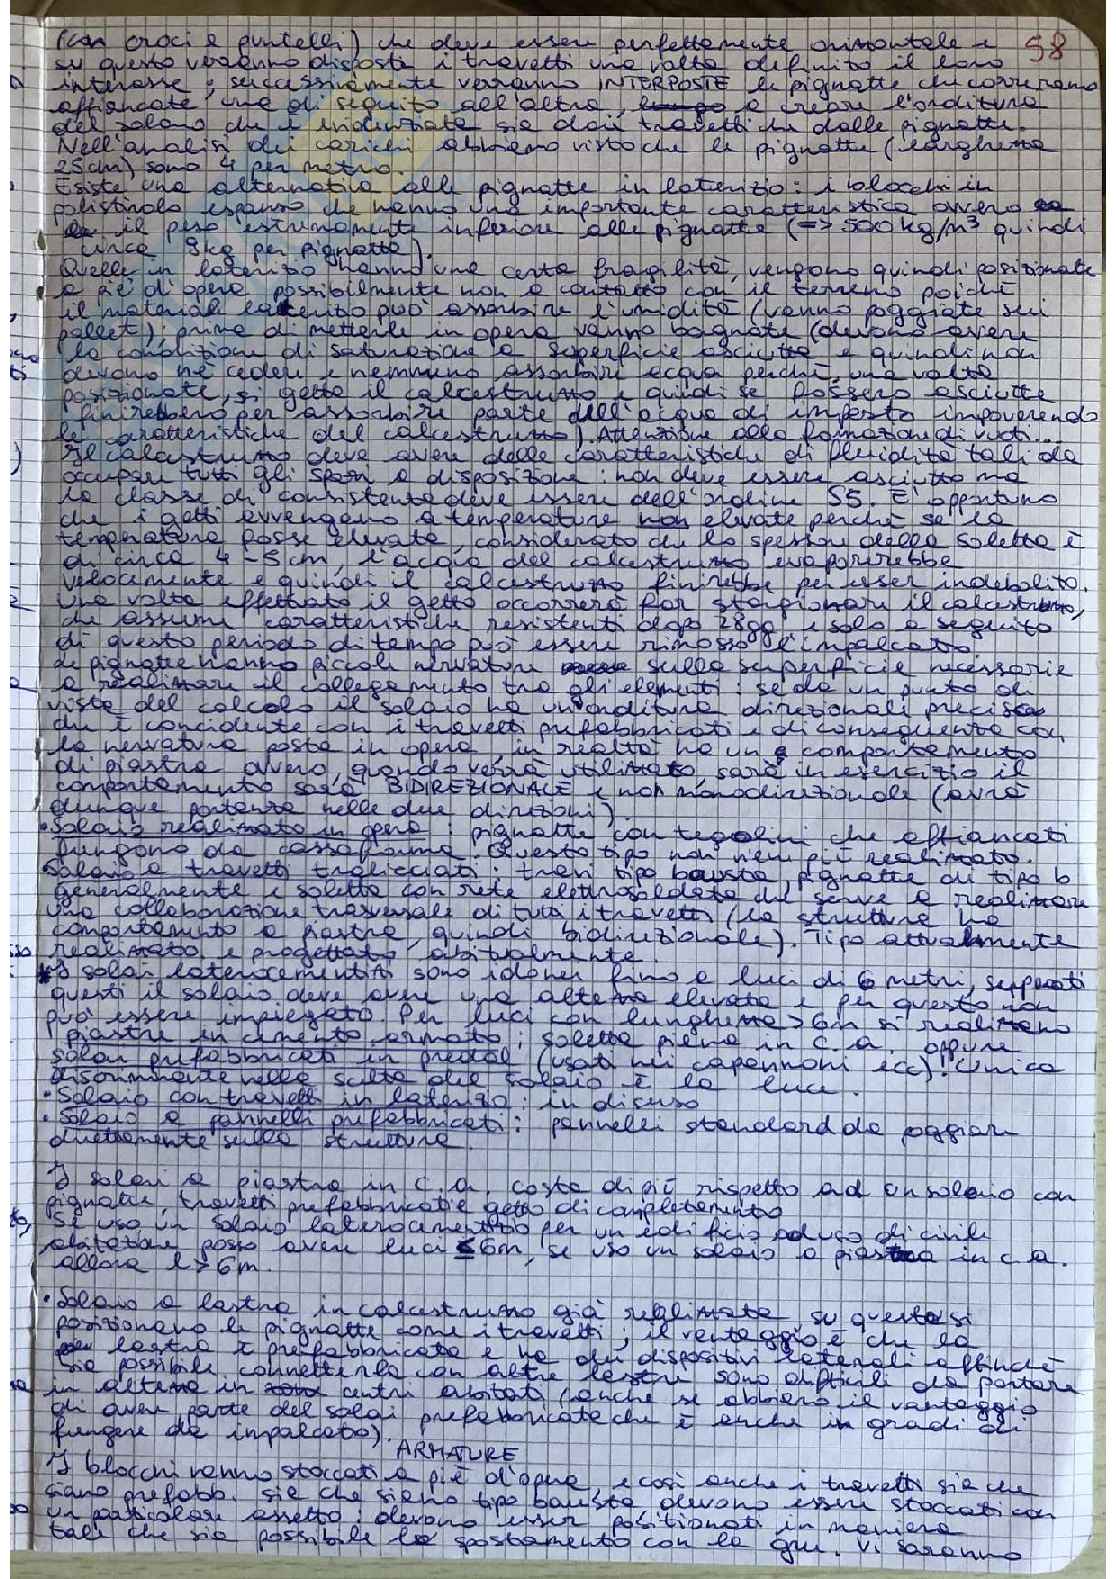 58
(con croci e puntelli) che deve essere perfettamente orizzontale e
su questo verranno disposti i travetti una volta definito il loro
interasse, successivamente verranno INTERPOSTE le pignatte che correranno
affiancate una di seguito all'altra, e creare l'orditura
del solaio che è evidenziata sia dai travetti che dalle pignatte.
Nell'analisi dei carichi abbiamo visto che le pignatte (larghezza
25cm) sono 4 per metro.
Esiste una alternativa alle pignatte in laterizio: i blocchi in
polistirolo espanso che hanno una importante caratteristica ovvero
il peso estremamente inferiore alle pignatte (=> 500 kg/m³ quindi
circa 9kg per pignatta).
Quelle in laterizio hanno una certa fragilità, vengono quindi posizionate
a piè d'opera possibilmente non a contatto con il terreno poiché
il materiale laterizio può assorbire l'umidità (vanno poggiate sui
pallet); prima di metterle in opera vanno bagnate (devono avere
la condizione di saturazione a superficie asciutta e quindi non
devono né cedere e nemmeno assorbire acqua perché, una volta
posizionate, si getta il calcestruzzo e quindi se fossero asciutte
finirebbero per assorbire parte dell'acqua di impasto impoverendo
le caratteristiche del calcestruzzo). Attenzione alla formazione di vuoti...
Il calcestruzzo deve avere delle caratteristiche di fluidità tali da
occupare tutti gli spazi a disposizione: non deve essere asciutto ma
la classe di consistenza deve essere dell'ordine S5. E' opportuno
che i getti avvengano a temperature non elevate perché se la
temperatura fosse elevata, considerato che lo spessore della soletta è
di circa 4-5 cm, l'acqua del calcestruzzo evaporerebbe
velocemente e quindi il calcestruzzo finirebbe per esser indebolito.
Una volta effettuato il getto occorrerà far stagionare il calcestruzzo,
che assume caratteristiche resistenti dopo 28gg e solo a seguito
di questo periodo di tempo può essere rimosso l'impalcato.
Le pignatte hanno piccole nervature sulla superficie necessarie
a realizzare il collegamento tra gli elementi: se da un punto di
vista del calcolo il solaio ha un'orditura direzionale precisa
che è coincidente con i travetti prefabbricati e di conseguenza con
la nervatura posta in opera, in realtà ha un comportamento
di piastra ovvero, quando verrà utilizzato, sarà in esercizio il
comportamento sarà BIDIREZIONALE e non monodirezionale (avrà
dunque portanza nelle due direzioni).
• Solaio realizzato in opera: pignatte con tegolini che affiancati
fungono da cassaforma. Questo tipo non viene più realizzato.
• Solaio a travetti tralicciati: travi tipo bausta, pignatte di tipo b
generalmente e soletta con rete elettrosaldata che serve a realizzare
una collaborazione trasversale di tutti i travetti (la struttura ha
comportamento a piastra, quindi bidirezionale). Tipo attualmente
realizzato e progettato abitualmente.
I solai laterocementizi sono idonei fino a luci di 6 metri, superati
questi il solaio deve avere una altezza elevata e per questo non
può essere impiegato. Per luci con lunghezza >6m si realizzano
piastre in cemento armato: soletta piena in c.a. oppure
solai prefabbricati in predal (usati nei capannoni ecc)! Unica
discriminante nella scelta del solaio è la luce.
• Solaio con travetti in laterizio: in disuso
• Solaio a pannelli prefabbricati: pannelli standard da poggiare
direttamente sulla struttura.
I solai a piastra in c.a. costa di più rispetto ad un solaio con
pignatte, travetti prefabbricati e getto di completamento
Se uso un solaio laterocementizio per un edificio ad uso di civile
abitazione posso avere luci ≤6m, se uso un solaio a piastra in c.a.
allora l>6m.
• Solaio a lastra in calcestruzzo già realizzata, su questa si
posizionano le pignatte come i travetti; il vantaggio è che la
lastra è prefabbricata e ha dei dispositivi laterali affinché
sia possibile connetterla con altre lastre sono difficili da portare
in altezza in centri abitati (anche se abbiamo il vantaggio
di avere parte del solai prefabbricate che è anche in gradi di
fungere da impalcato).
ARMATURE
I blocchi vanno stoccati a piè d'opera e così anche i travetti sia che
siano prefabb. sia che siano tipo bausta devono essere stoccati con
un particolare assetto: devono esser posizionati in maniera
tale che sia possibile lo spostamento con la gru. Vi saranno